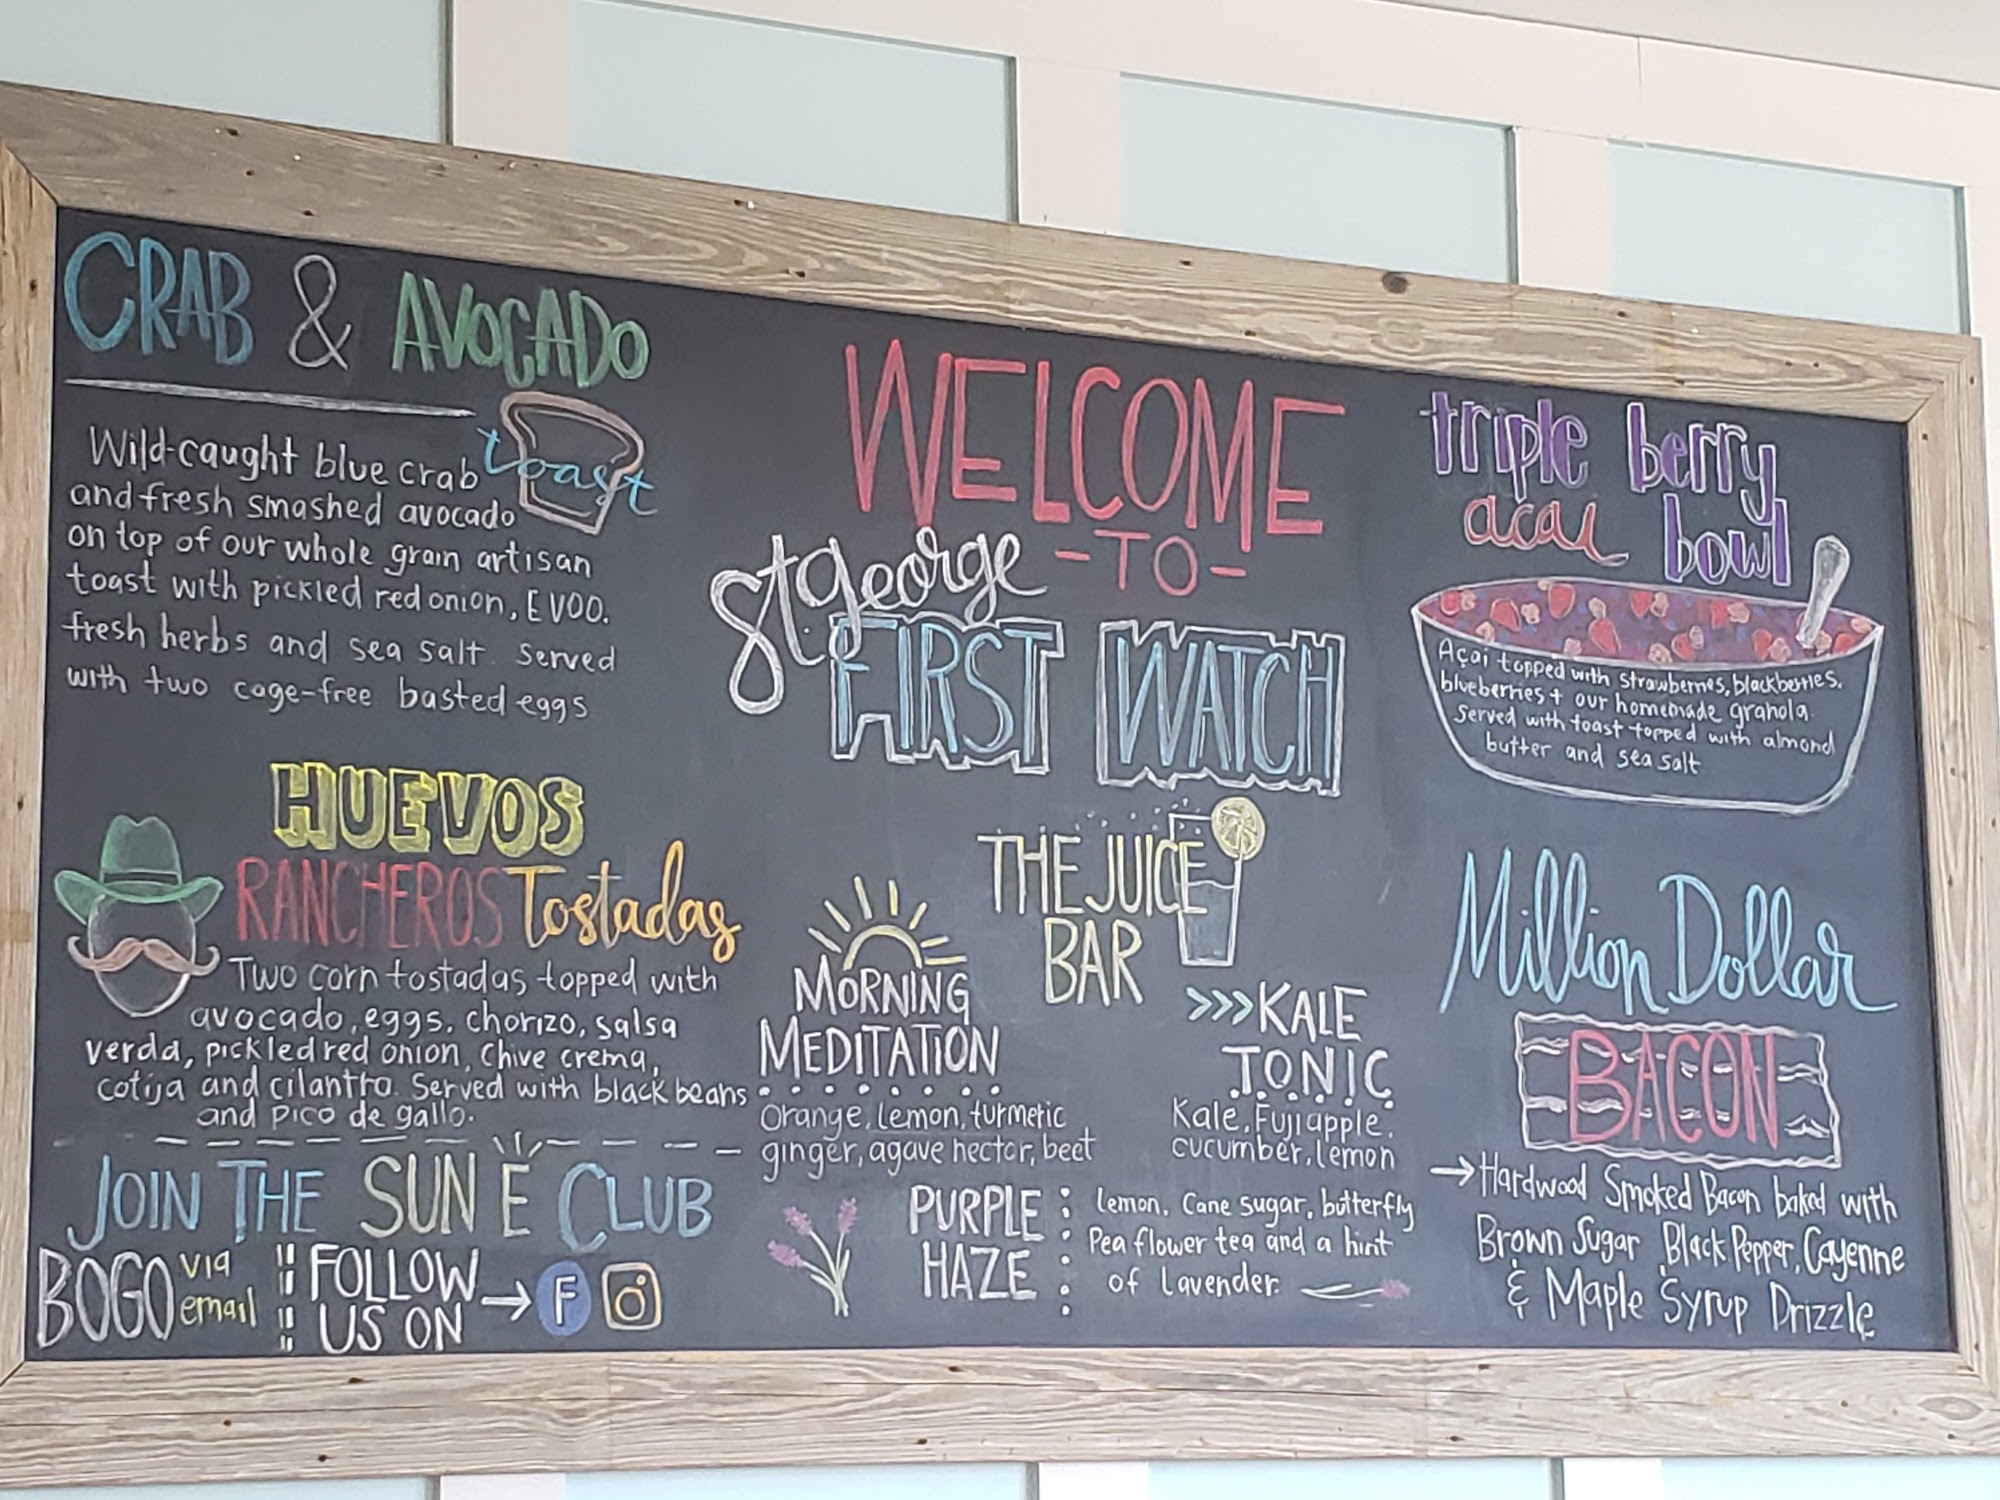 CRAB & AVOCADO
toast
Wild-caught blue crab
and fresh smashed avocado
on top of our whole grain artisan
toast with pickled red onion, EVOO.
fresh herbs and sea salt. Served
with two cage-free basted eggs
HUEVOS
RANCHEROS Tostadas
Two corn tostadas topped with
avocado, eggs, chorizo, salsa
verda, pickled red onion, chive crema,
cotija and cilantro. Served with black beans
and pico de gallo.
JOIN THE SUN E CLUB
BOGO via
email
FOLLOW
US ON
F
WELCOME
- TO -
St. george
FIRST WATCH
THE JUICE
BAR
MORNING
MEDITATION
orange, lemon, turmeric
ginger, agave nectar, beet
>>> KALE
TONIC
Kale, Fuji apple,
cucumber, lemon
PURPLE
HAZE
lemon, Cane sugar, butterfly
Pea flower tea and a hint
of lavender.
triple berry
acai bowl
Açai topped with strawberries, blackberries,
blueberries + our homemade granola.
Served with toast topped with almond
butter and sea salt
Million Dollar
BACON
Hardwood Smoked Bacon baked with
Brown Sugar, Black Pepper, Cayenne
& Maple Syrup Drizzle